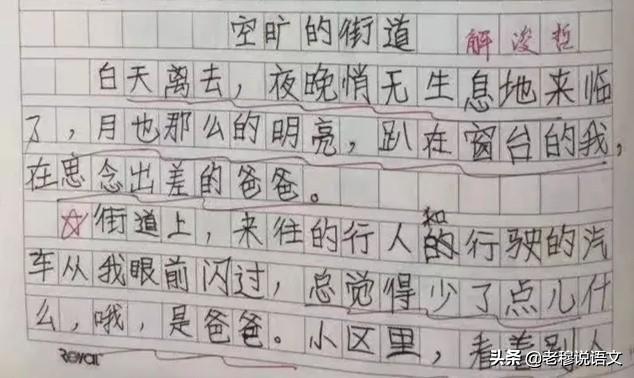 空旷的街道 解浚哲
白天离去，夜晚悄无生息地来临
了，月也那么的明亮，趴在窗台的我，
在思念出差的爸爸。
街道上，来往的行人和行驶的汽
车从我眼前闪过，总觉得少了点儿什
么，哦，是爸爸。小区里，看着别人
Royal
头条 @老穆说语文